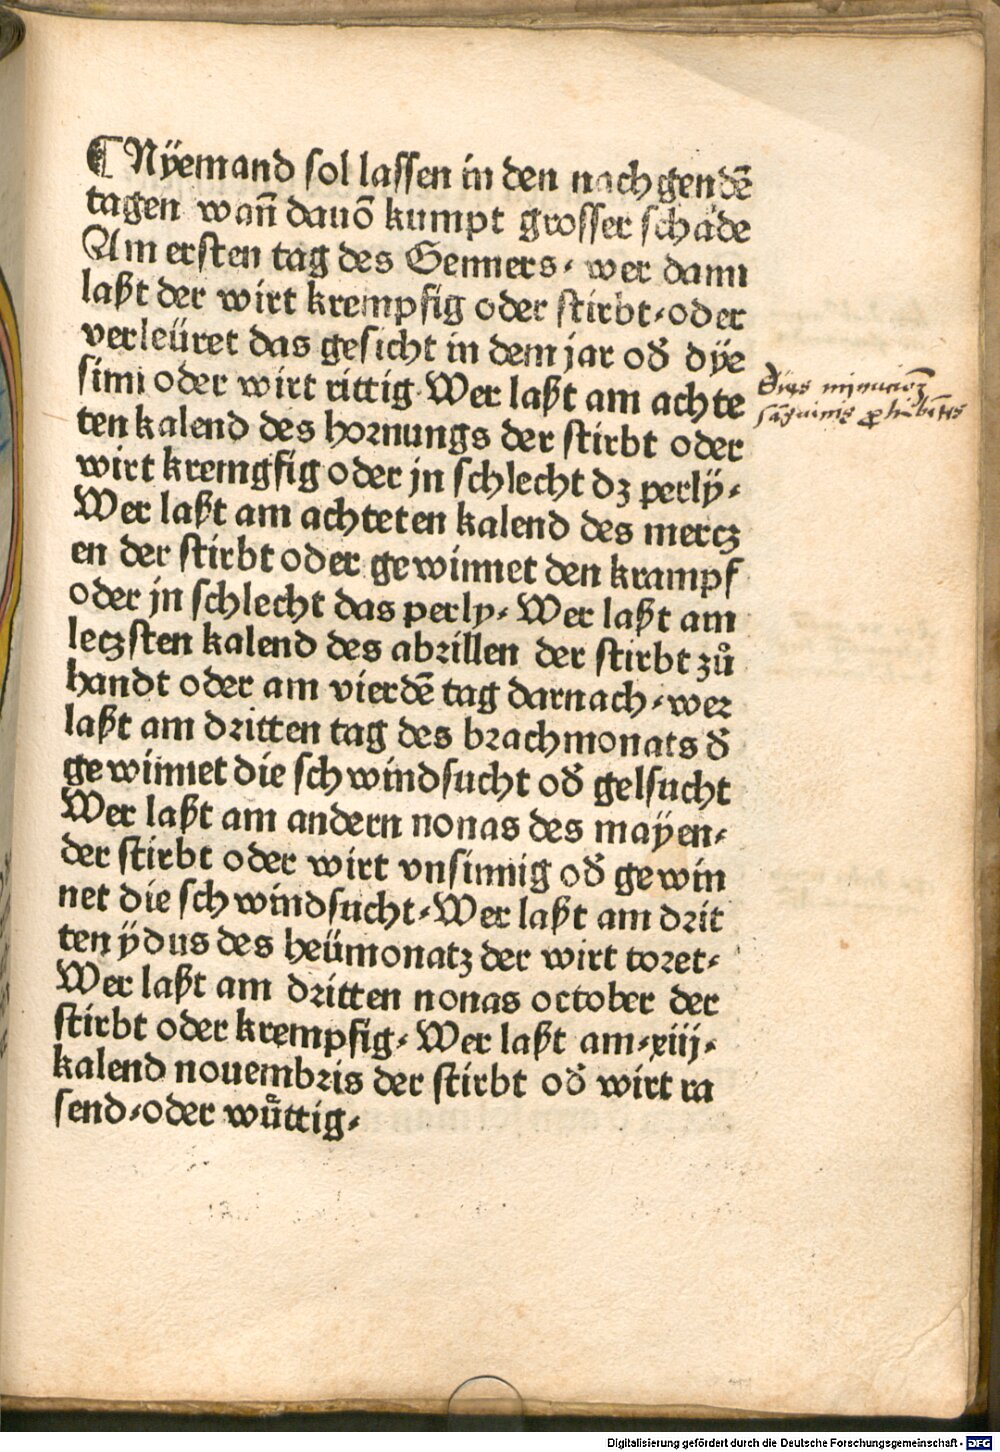 ⸿ Nÿemand sol lassen in den nachgendē
tagen wañ dauō kumpt grosser schade
Am ersten tag des Genners. wer dann
laßt der wirt krempfig oder stirbt. oder
verleüret das gesicht in dem jar od̄ dÿe
simi oder wirt rittig. Wer laßt am achte
ten kalend des hornungs der stirbt oder
wirt kremgfig oder jn schlecht dz perlÿ.
Wer laßt am achteten kalend des mercz
en der stirbt oder gewinnet den krampf
oder jn schlecht das perly. Wer laßt am
leczsten kalend des abrillen der stirbt zů
handt oder am vierdē tag darnach. wer
laßt am dritten tag des brachmonats d̄
gewinnet die schwindsucht od̄ gelsucht
Wer laßt am andern nonas des mayen.
der stirbt oder wirt vnsinnig od̄ gewin
net die schwindsucht. Wer laßt am drit
ten ÿdus des heümonatz der wirt toret.
Wer laßt am dritten nonas october der
stirbt oder krempfig. Wer laßt am. xiij.
kalend nouembris der stirbt od̄ wirt ra
send. oder wůttig.
Dies minucioꝝ
sāguinis ꝓhibētes
Digitalisierung gefördert durch die Deutsche Forschungsgemeinschaft - DFG